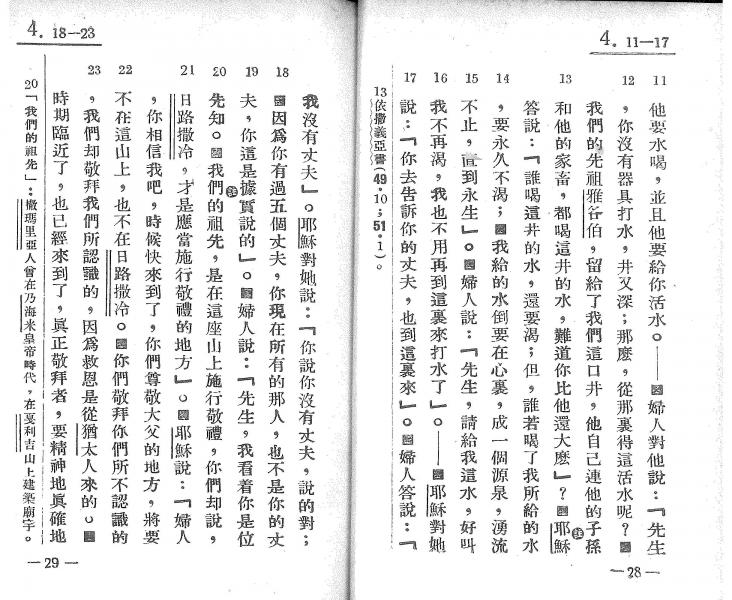 4. 11—17
11 他要水喝,並且他要給你活水。——■婦人對他說:「先生
12 ,你沒有器具打水,井又深;那麼,從那裏得這活水呢?■
我們的先祖雅各伯,留給了我們這口井,他自己連他的子孫
13 和他的家畜,都喝這井的水,難道你比他還大麽」?■耶穌
答說:「誰喝這井的水,還要渴;但,誰若喝了我所給的水
14 ,要永久不渴;■我給的水倒要在心裏,成一個源泉,湧流
15 不止,直到永生」。■婦人說:「先生,請給我這水,好叫
16 我不再渴,我也不用再到這裏來打水了」。——■耶穌對她
17 說:「你去告訴你的丈夫,也到這裏來」。■婦人答說:「
13依撒義亞書(49·10;51·1)。
—28—
4. 18—23
我沒有丈夫」。耶穌對她說:「你說你沒有丈夫,說的對;
18 ■因爲你有過五個丈夫,你現在所有的那人,也不是你的丈
19 夫,你這是據實說的」。■婦人說:「先生,我看着你是位
20 先知。■我們的祖先,是在這座山上施行敬禮,你們却說,
21 日路撒冷,才是應當施行敬禮的地方」。■耶穌說:「婦人
,你相信我吧,時候快來到了,你們尊敬大父的地方,將要
22 不在這山上,也不在日路撒冷。■你們敬拜你們所不認識的
23 ,我們却敬拜我們所認識的,因爲救恩是從猶太人來的。■
時期臨近了,也已經來到了,眞正敬拜者,要精神地眞確地
20「我們的祖先」:撒瑪里亞人曾在乃海米皇帝時代,在戛利吉山上建築廟宇。
—29—